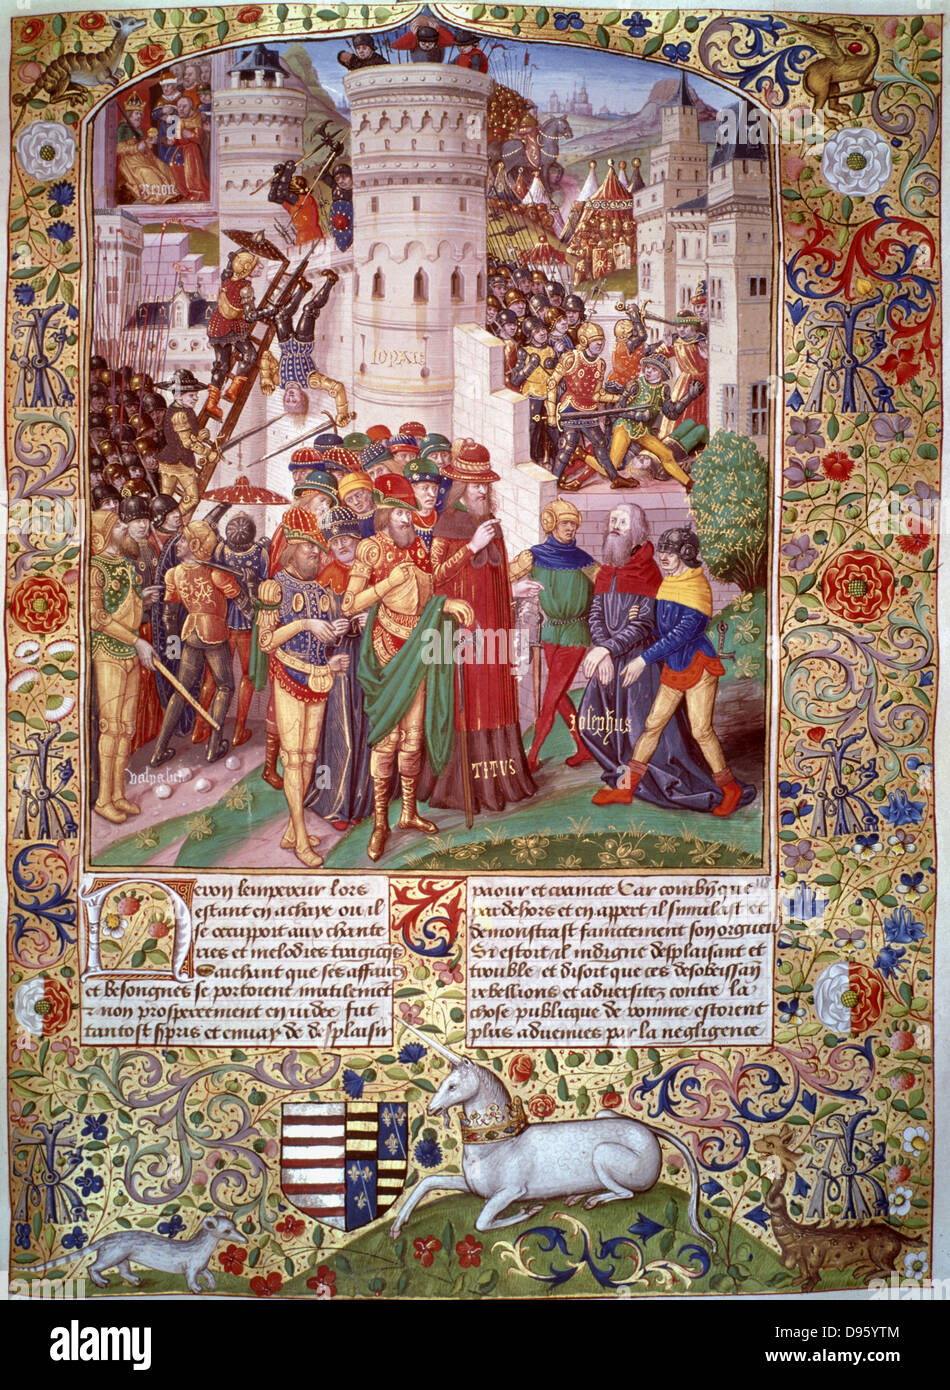 Neron
IOPAIE
TITUS
Iosephus
Neron lempereur lors
estant en achaye ou il
se occupoit aux chante
ries et melodies tragicqs
Saichant que ses affair
et besongnes se portoient inutilemet
non prosperement en iudee fut
tantost spris et enuay de desplaisir
paour et crainte Car combyn que
par dehors et en appert il simulast et
demonstrast faintement son orgueu
Si estoit il indigne desplaisant et
trouble et disoit que ces desobeissan
rebellions et aduersitez contre la
chose publicque de romme estoient
plus aduenues par la negligence
alamy
Image ID: D95YTM
www.alamy.com